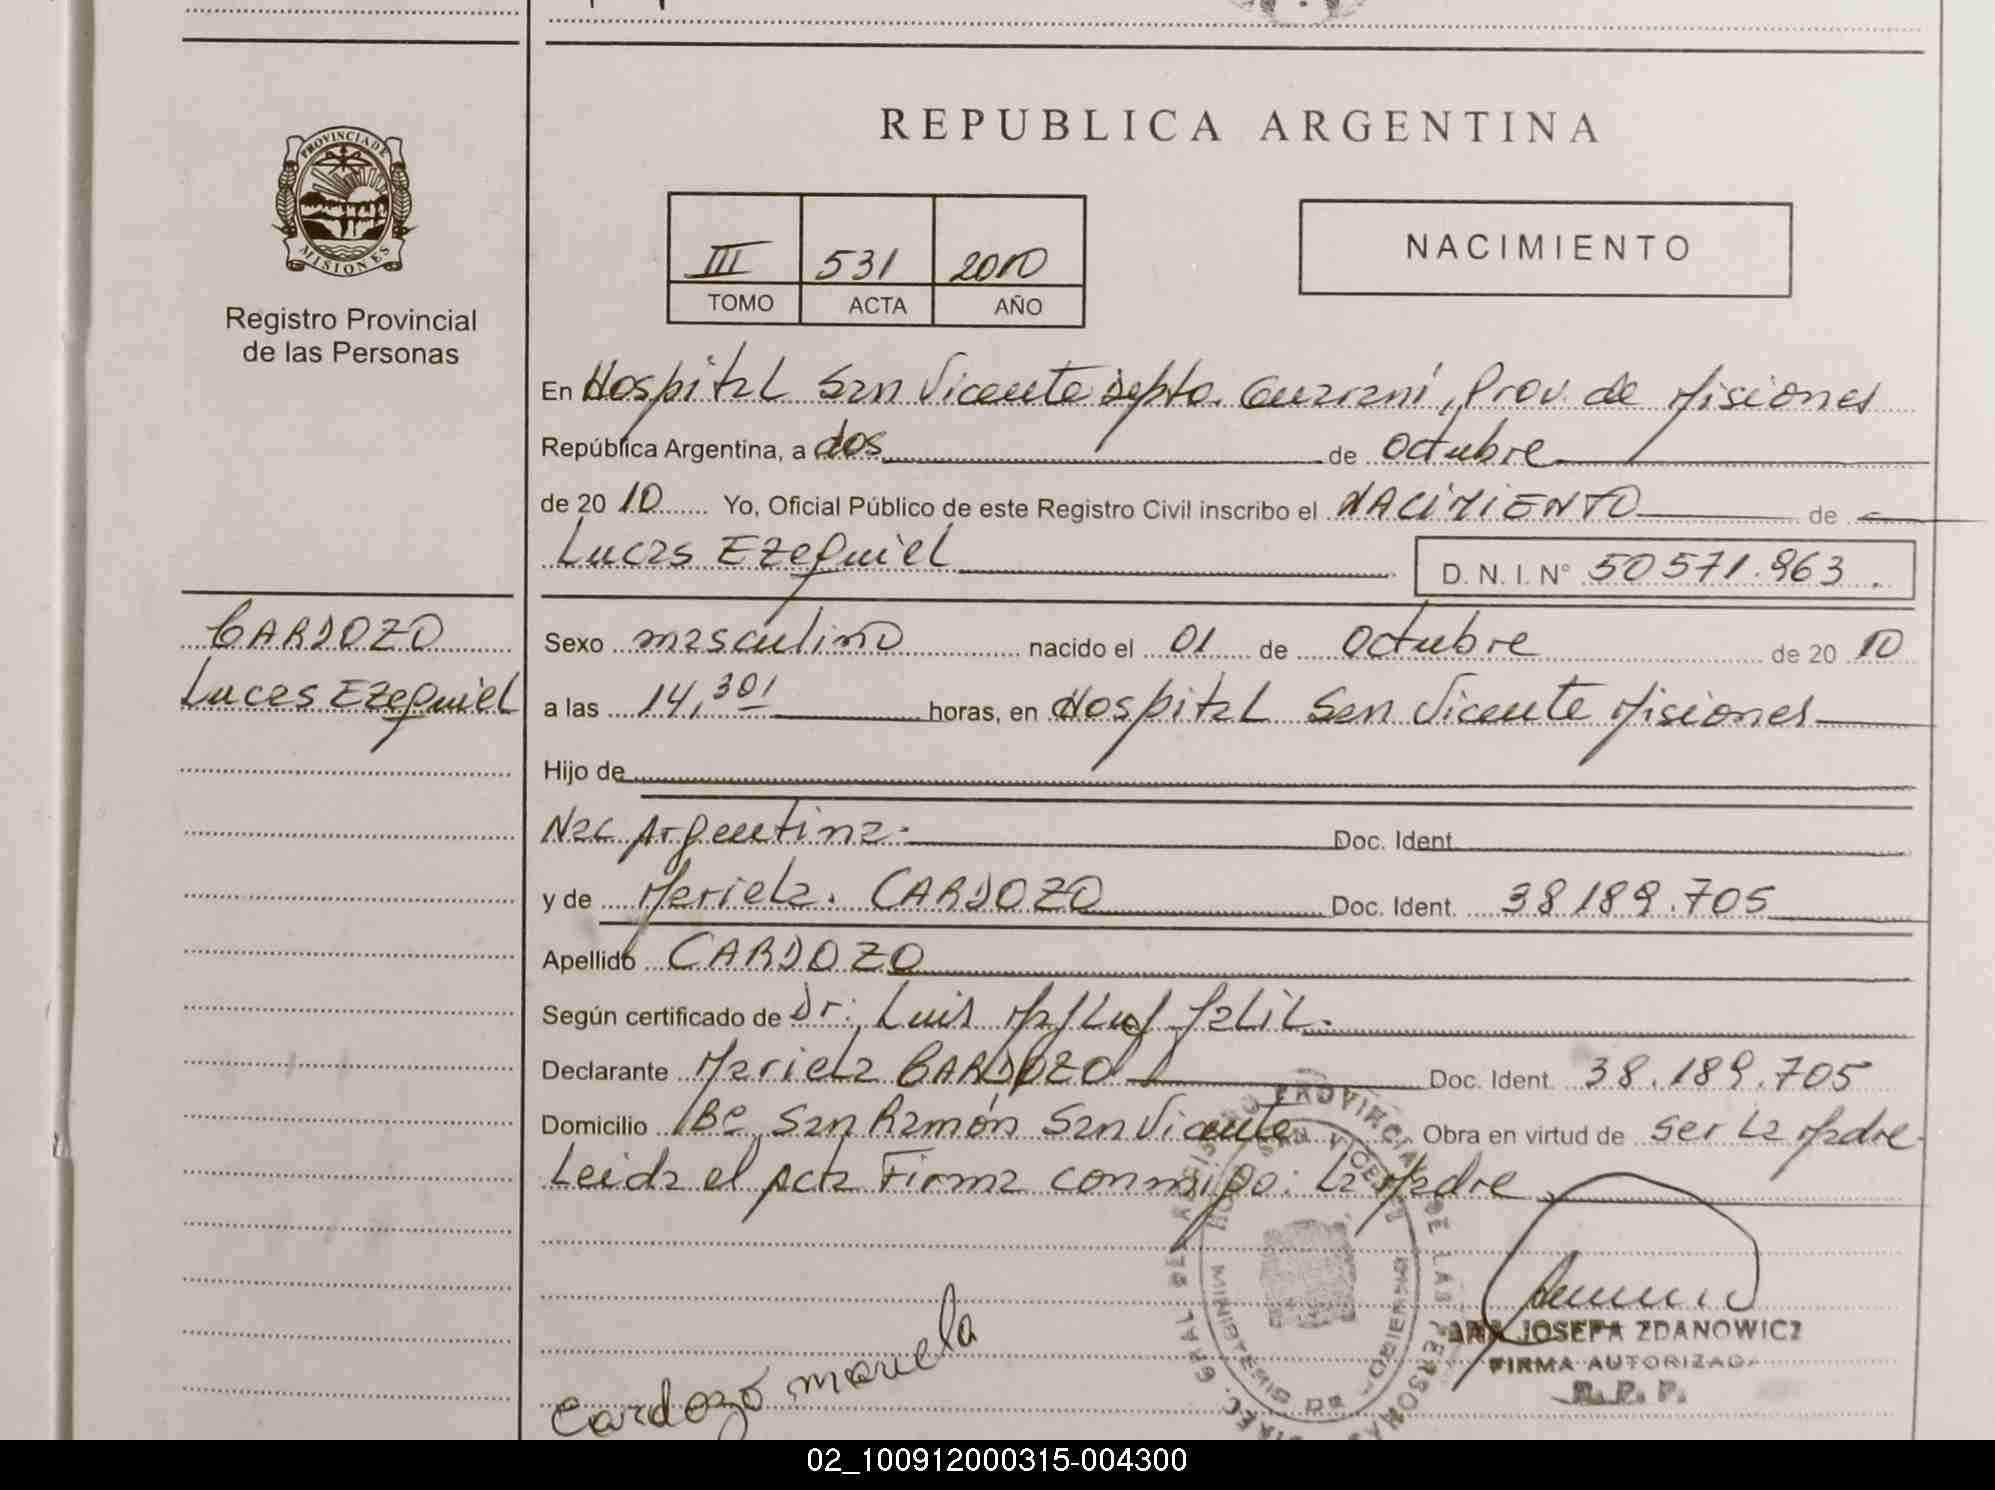 PROVINCIA DE
MISIONES
Registro Provincial
de las Personas
CARDOZO
Lucas Ezequiel
REPUBLICA ARGENTINA
III 531 2010
TOMO ACTA AÑO
NACIMIENTO
En Hospital San Vicente Depto. Guaraní, Prov. de Misiones
República Argentina, a dos de Octubre
de 2010 Yo, Oficial Público de este Registro Civil inscribo el NACIMIENTO de
Lucas Ezequiel
D. N. I. N° 50571.963.
Sexo masculino nacido el 01 de Octubre de 2010
a las 14,30 horas, en Hospital San Vicente Misiones
Hijo de
Nac Argentina. Doc. Ident.
y de Mariela. CARDOZO Doc. Ident. 38189.705
Apellido CARDOZO
Según certificado de Dr: Luis Jalil.
Declarante Mariela CARDOZO Doc. Ident 38.189.705
Domicilio Bº San Ramón San Vicente Obra en virtud de ser La Madre
Leida el Acta Firma conmigo: La Madre
Cardozo mariela
MINISTERIO DE GOBIERNO
JOSEFA ZDANOWICZ
FIRMA AUTORIZADA
R. P. P.
02_100912000315-004300